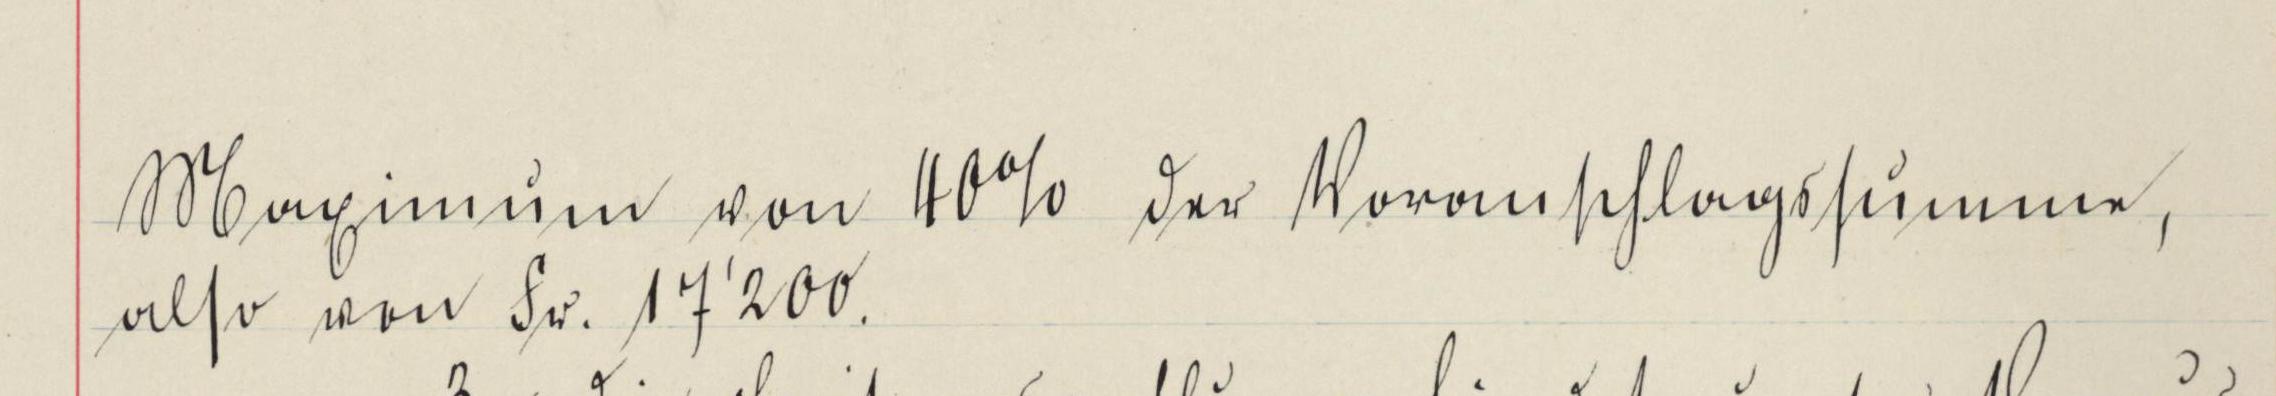 Maximum von 40% der Voranschlagssumme,
also von Fr. 17'200.